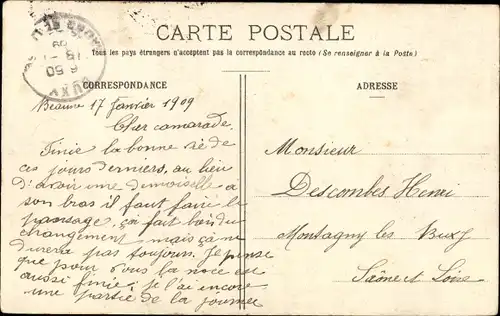 CARTE POSTALE
Tous les pays étrangers n'acceptent pas la correspondance au recto (Se renseigner à la Poste)
CORRESPONDANCE
ADRESSE
Beaune 17 Janvier 1909
Cher camarade.
Finie la bonne vie de
ces jours derniers, au lieu
d'avoir une demoiselle a
son bras il faut faire le
pansage, ça fait bien du
changement mais ça ne
durera pas toujours. Je pense
que pour vous la noce est
aussi finie; je l'ai encore
une partie de la journée
Monsieur
Descombes Henri
Montagny les Buxy
Saône et Loire